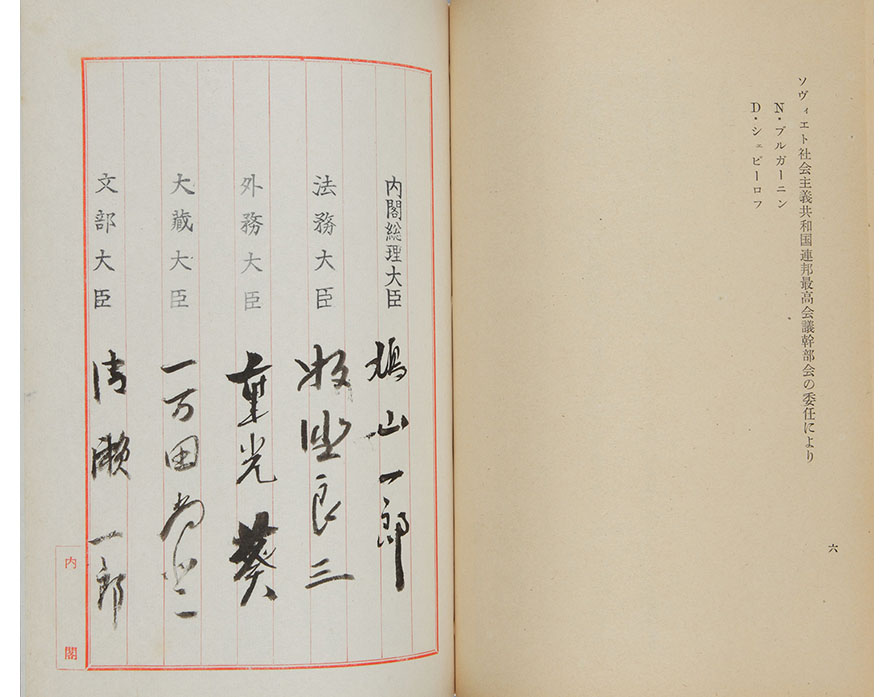 ソヴィエト社会主義共和国連邦最高会議幹部会の委任により
N・ブルガーニン
D・シェピーロフ
六
内閣総理大臣 鳩山一郎
法務大臣 牧野良三
外務大臣 重光葵
大蔵大臣 一万田尚登
文部大臣 清瀬一郎
内閣